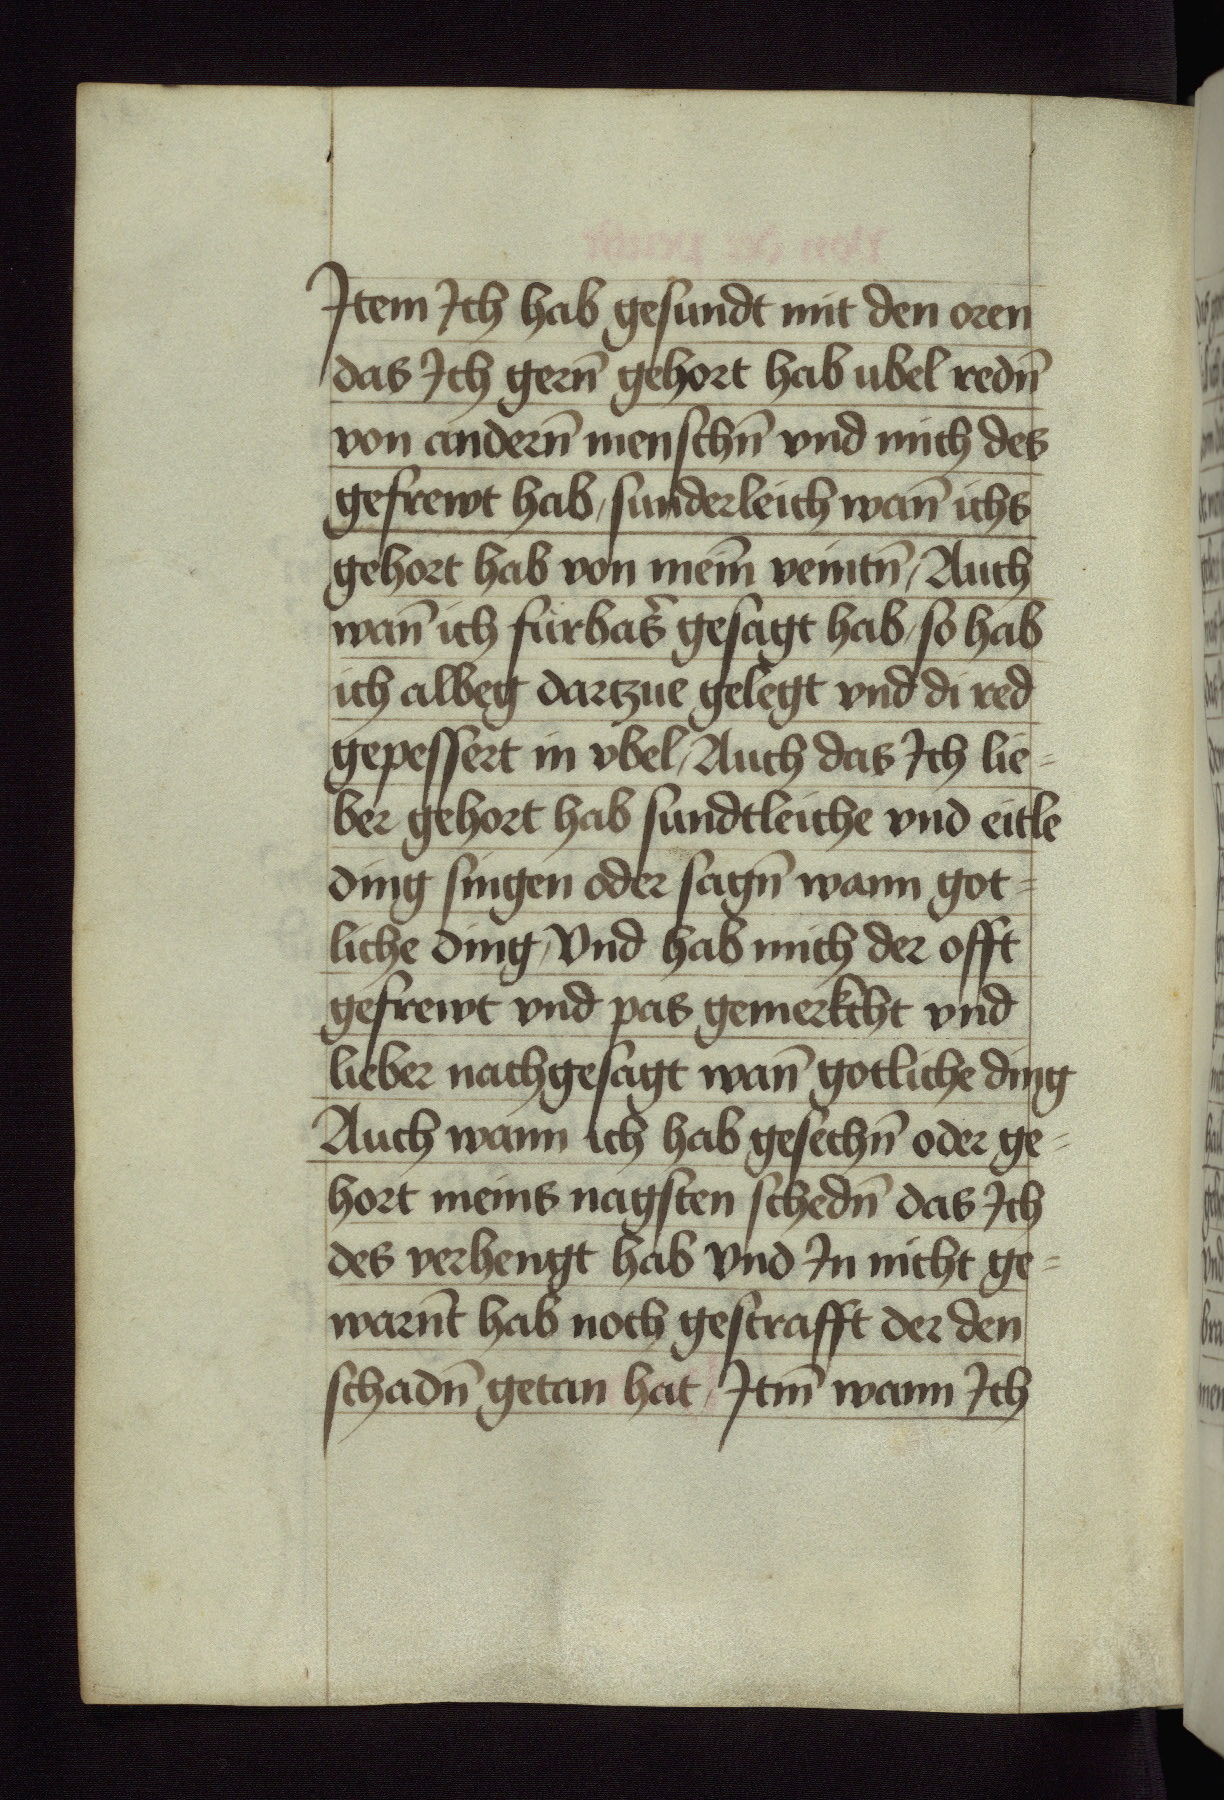 Item Ich hab gesundt mit den oren
das Ich gern̄ gehort hab ubel redn̄
von andern̄ menschn̄ vnd mich des
gefrewt hab / sunderleich wan̄ ichs
gehort hab von meim̄ veintn̄ / Auch
wan̄ ich fürbas̄ gesagt hab / so hab
ich albeg dartzue gelegt vnd di red
gepessert in vbel / Auch das Ich lie=
ber gehort hab sundtleiche vnd eitle
ding singen oder sagn̄ wann got=
liche ding / Vnd hab mich der offt
gefrewt vnd pas gemerkcht vnd
lieber nachgesagt wan̄ gotliche ding
Auch wann ich hab gesechn̄ oder ge=
hort meins nagsten schedn̄ das Ich
des verhengt hab Vnd In nicht ge=
warn̄t hab noch gestrafft der den
schadn̄ getan hat / Itm̄ wann Ich